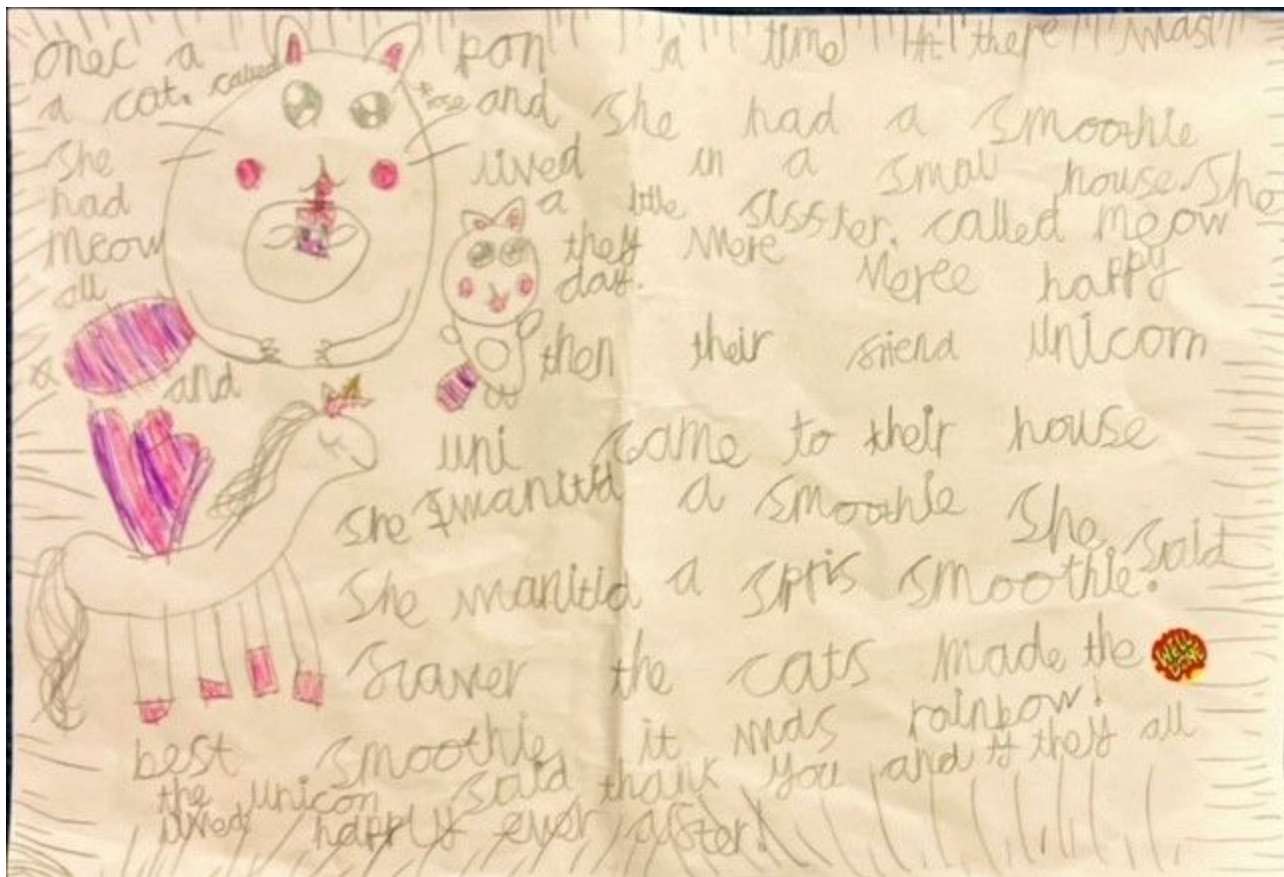 onec a pon a time there was
a cat. called rose and she had a smoothie
she lived in a small house. She
had a little sisster. called meow
meow they were veree happy
all day.
and then their friend unicorn
uni came to their house
she wanitid a smoothie she said
she wanitid a spris smoothie.
the cats made the
best smoothie it was rainbow!
the unicon said thank you and they all
lived happly ever after!
WELL DONE